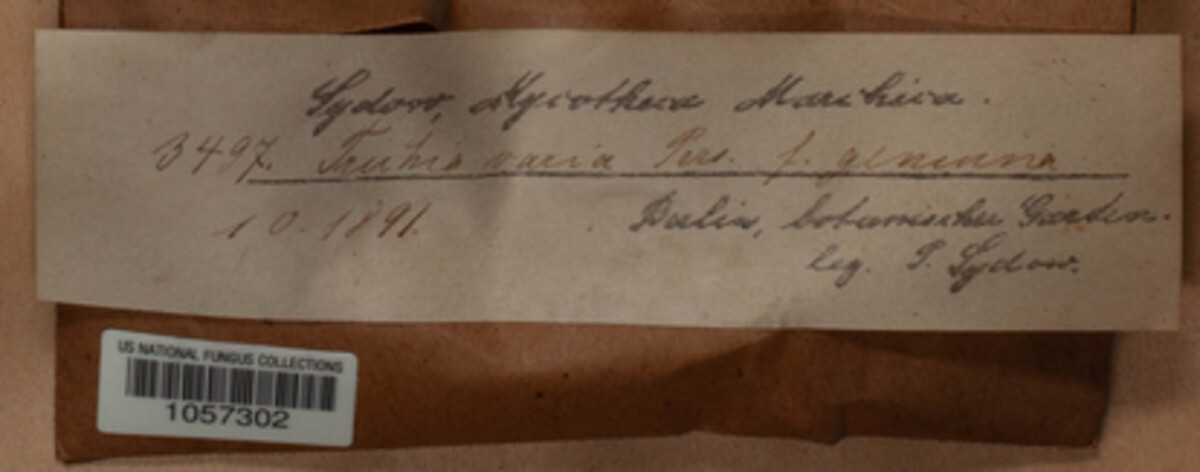 Sydow, Mycotheca Marchica.
3497. Trichia varia Pers. f. genuina
10. 1891. Berlin, botanischer Garten.
leg. P. Sydow.
US NATIONAL FUNGUS COLLECTIONS
1057302